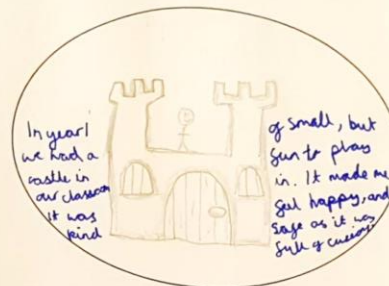 In year 1
we had a
castle in
our classroom
It was
kind
of small, but
fun to play
in. It made me
feel happy, and
safe as it was
full of cushions